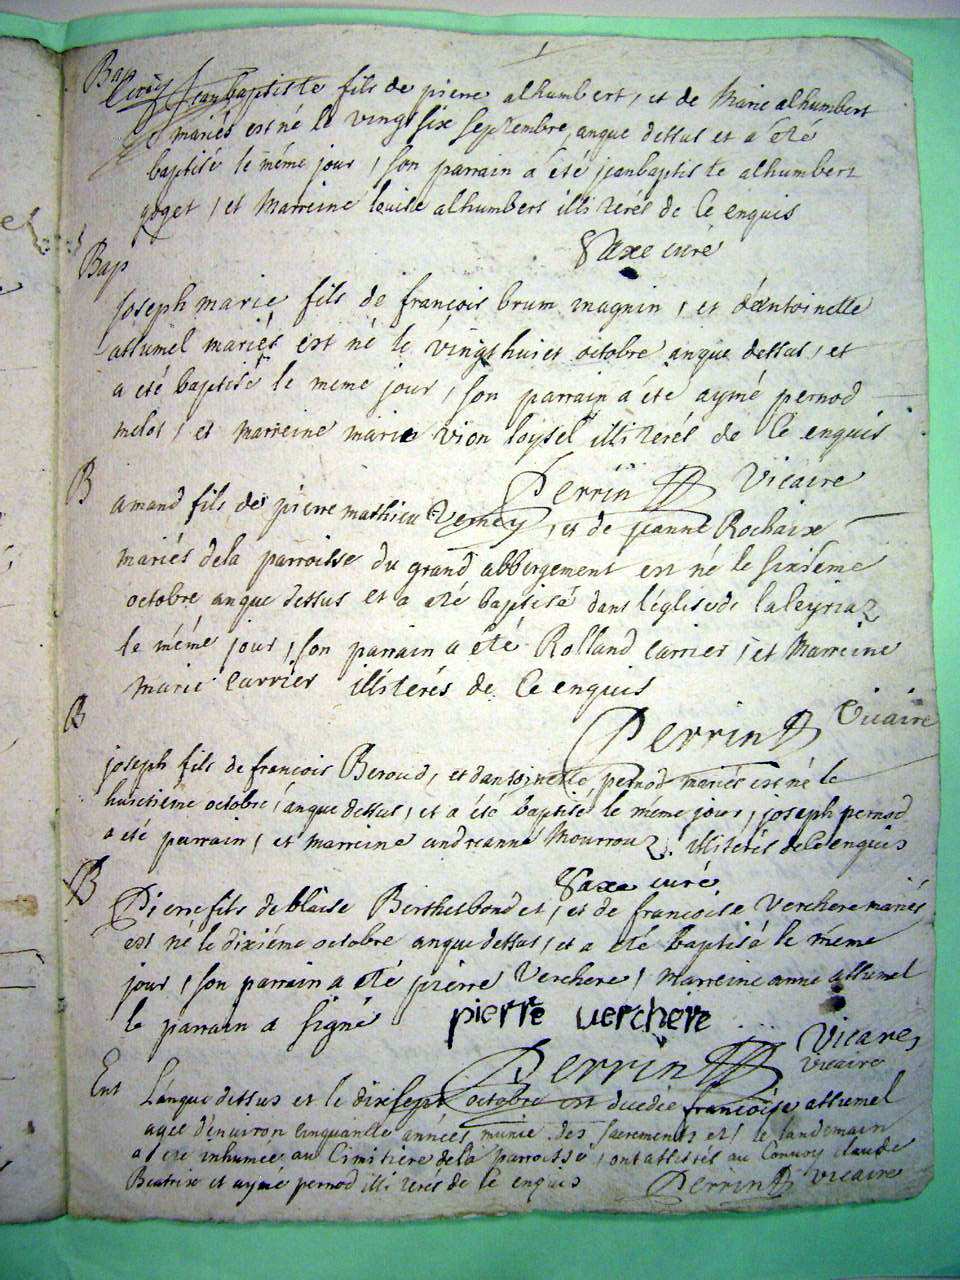 Bap
Jeanbaptiste fils de pierre alhumbert, et de Marie alhumbert
mariés est né le vingt six septembre, anque dessus et a été
baptisé le méme jour, son parrain a été jeanbaptiste alhumbert
goget, et Marreine louise alhumbert illiterés de ce enquis
Saxe curé
Bap
Joseph marie fils de françois brum magnin, et d'antoinelle
allumel mariés est né le vingt huict octobre anque dessus, et
a été baptisé le meme jour, son parrain a été aymé pernod
melot, et marreine marie vion loysel illiterés de ce enquis
Perrin Vicaire
B
amand fils de pierre mathieu Verney, et de jeanne Rochaix
mariés dela parroisse du grand abbergement est né le sixième
octobre anque dessus et a été baptisé dans l'église de laleyriaz
le méme jour, son parrain a été Rolland carrier, et Marreine
marie carrier illiterés de ce enquis
Perrin Vicaire
B
joseph fils defrancois Beroud, et dantoinette pernod mariés est né le
huictième octobre, anque dessus, et a été baptisé le méme jour, joseph pernod
a été parrain, et marreine andreanne Mourrouz illiterés dece enquis
Saxe curé
B
Pierre fils de blaise Berthet bondet, et de francoise Verchere mariés
est né le dixiéme octobre anque dessus, et a été baptisé le méme
jour, son parrain a été pierre Verchere, Marreine anne allumel
le parrain a signé pierre verchere
Perrin Vicaire
Vicaire
Ent
L'anque dessus et le dixsept octobre est decedée francoise allumel
agee d'environ cinquante années munie des sacrements et le landemain
a été inhumée au cimitiere dela parroisse, ont assistés au convoy claude
Beatrix et aymé pernod illiterés de ce enquis Perrin vicaire